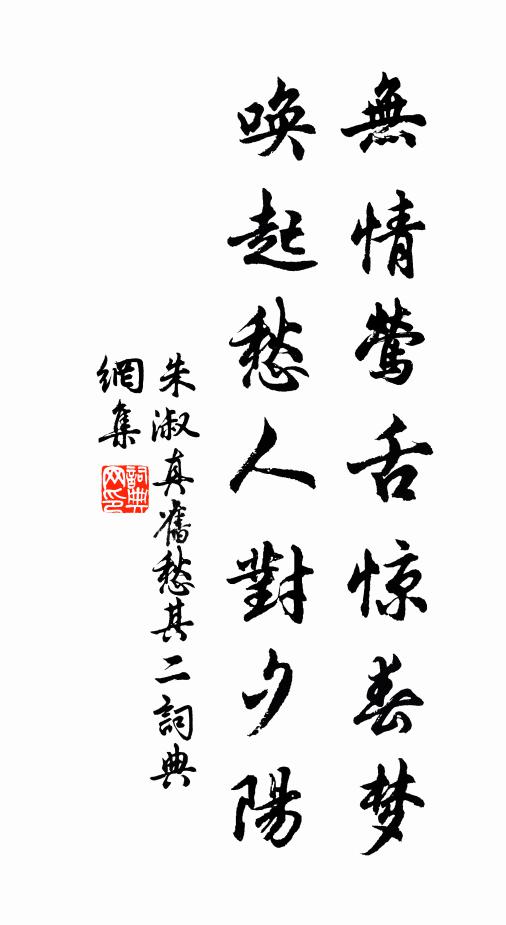 無情鶯舌惊春梦
喚起愁人對夕陽
朱淑真舊愁其二詞典
網集
詞典网印